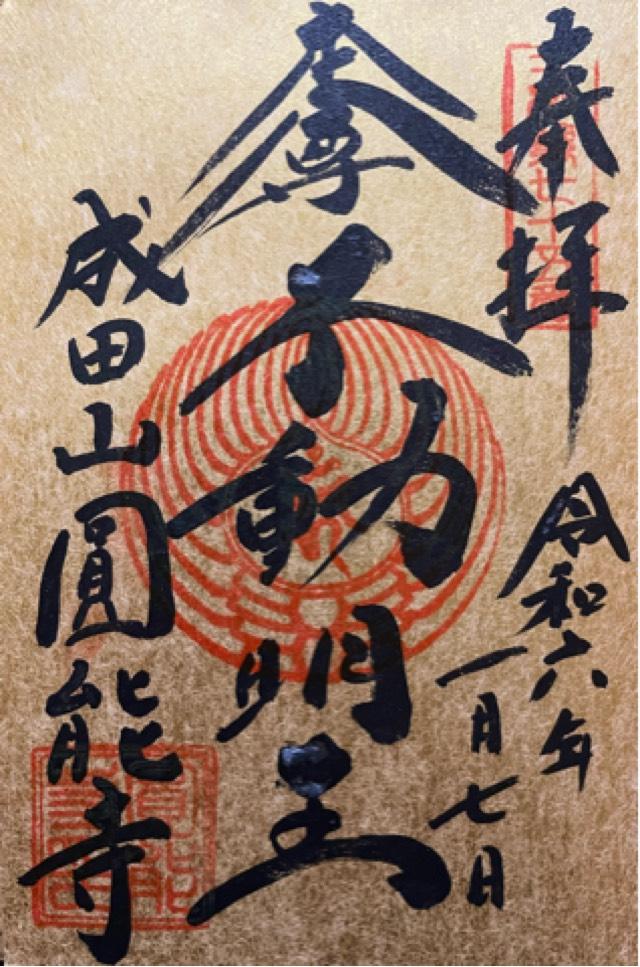 奉拝
令和六年
一月七日
本尊
不動明王
成田山圓能寺